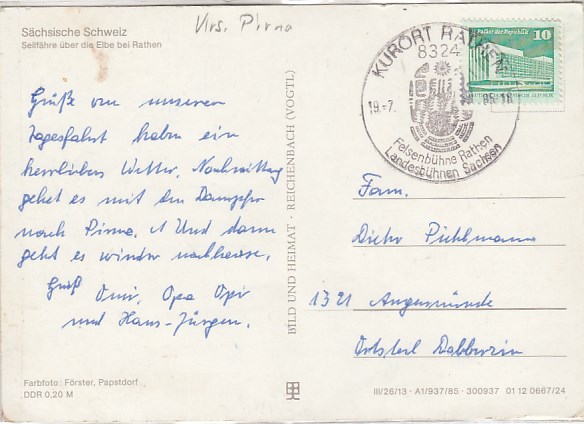 Vlrs. Pirna
Sächsische Schweiz
Seilfähre über die Elbe bei Rathen
Grüße von unserer
Tagesfahrt haben ein
herrliches Wetter, Nachmittag
gehet es mit dem Dampfer
nach Pirna. Und dann
geht es wieder nachhause.
Gruß
Omi, Opa Opi
und Hans-Jürgen.
Farbfoto: Förster, Papstdorf
DDR 0,20 M
BILD UND HEIMAT · REICHENBACH (VOGTL)
KURORT RATHEN
8324
19.-7.
Felsenbühne Rathen
Landesbühnen Sachsen
Palast der Republik
10
Fam.
Dieter Pichlmann
1321 Angermünde
Ortsteil Dobberzin
III/26/13 · A1/937/85 · 300937 01 12 0667/24